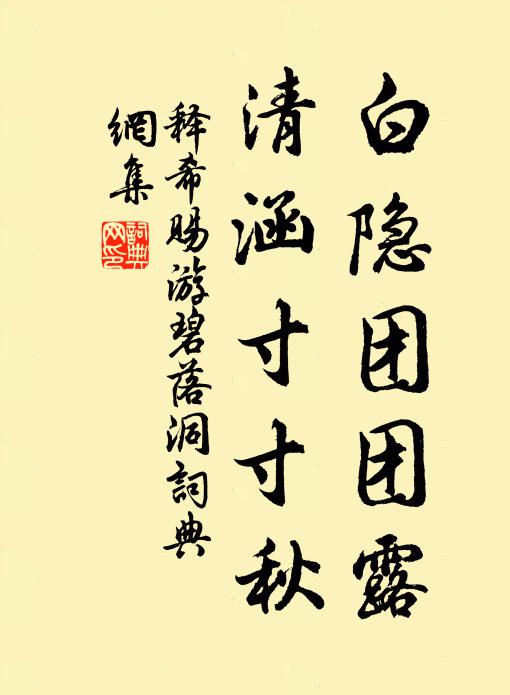 白隐团团露
清涵寸寸秋
释希赐游碧落洞詞典
網集
詞典
网印